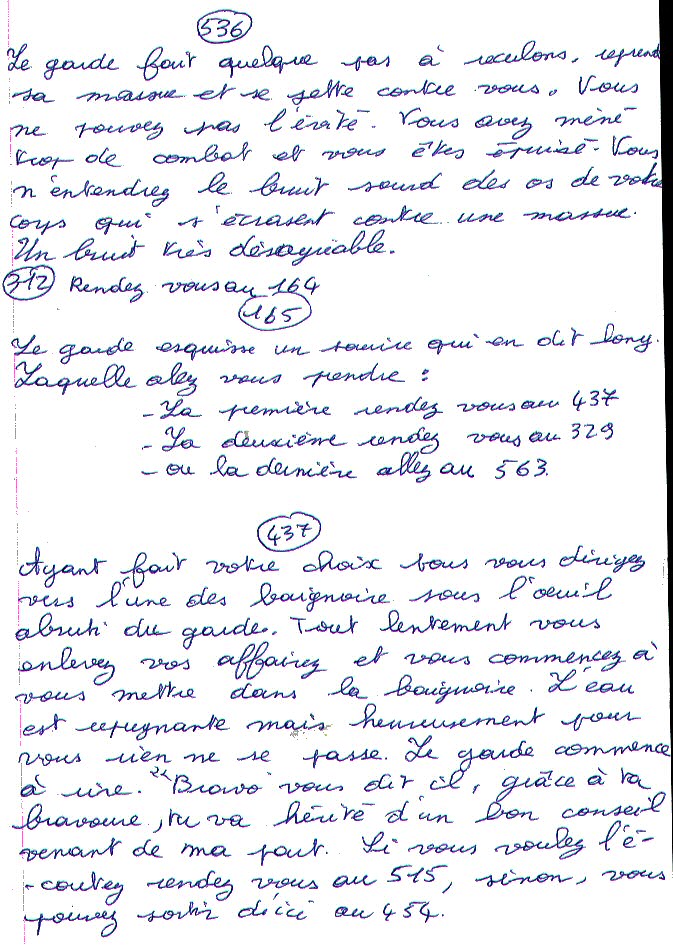 536
Le garde fait quelque pas à reculons, reprend
sa massue et se jette contre vous. Vous
ne pouvez pas l'évité. Vous avez mené
trop de combat et vous êtes épuisé. Vous
n'entendrez le bruit sourd des os de votre
corps qui s'écrasent contre une massue.
Un bruit très désagréable.
312 Rendez vous au 164
165
Le garde esquisse un sourire qui en dit long.
Laquelle alez vous prendre :
- La première rendez vous au 437
- La deuxième rendez vous au 329
- ou la dernière allez au 563.
437
Ayant fait votre choix vous vous dirigez
vers l'une des baignoire sous l'oeuil
abruti du garde. Tout lentement vous
enlevez vos affairez et vous commencez à
vous mettre dans la baignoire. L'eau
est repugnante mais heureusement pour
vous rien ne se passe. Le garde commence
à rire. "Bravo" vous dit il, grâce à ta
bravoure, tu va hérité d'un bon conseil
venant de ma part. Si vous voulez l'é-
-coutez rendez vous au 515, sinon, vous
pouvez sortir d'ici au 454.